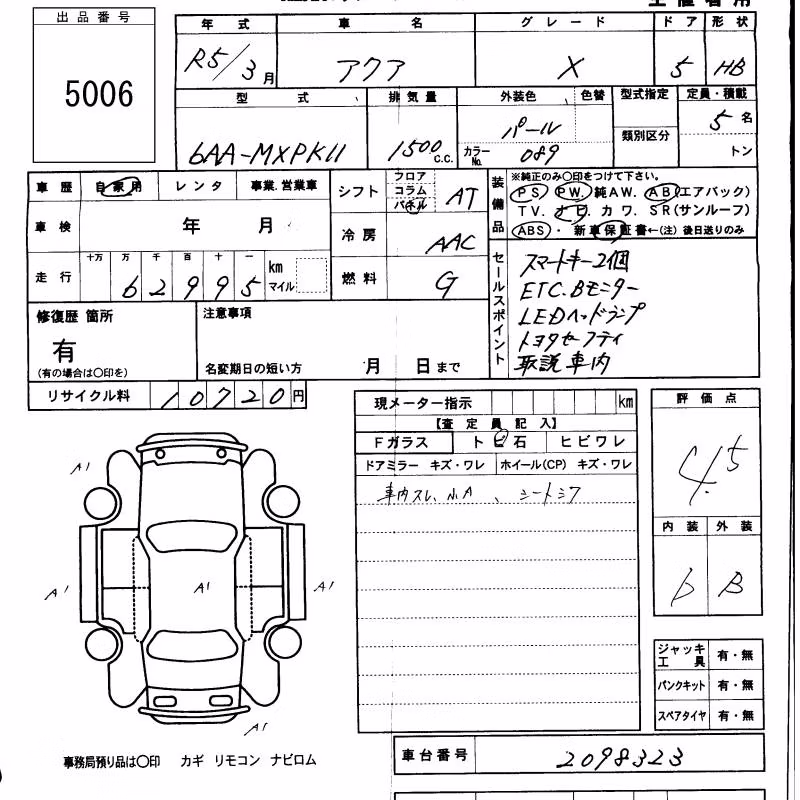 出品番号
5006
年式 車名 グレード ドア 形状
R5/3月 アクア X 5 HB
型式 排気量 外装色 色替 型式指定 定員・積載
6AA-MXPK11 1500 C.C. パール 類別区分 5名
カラーNo. 089 トン
車歴 自家用 レンタ 事業.営業車
車検 年 月
走行 十万 万 千 百 十 一 km マイル
62995
シフト フロア コラム パネル AT
冷房 AAC
燃料 G
装備品
※純正のみ〇印をつけて下さい。
PS. PW. 純AW. AB(エアバック)
TV. ナビ. カワ. SR(サンルーフ)
ABS・新車保証書←(注)後日送りのみ
セールスポイント
スマートキー2個
ETC.Bモニター
LEDヘッドランプ
トヨタセーフティ
取説車内
修復歴 箇所
有
(有の場合は〇印を)
注意事項
名変期日の短い方 月 日まで
リサイクル料 10720円
現メーター指示 km
【査定員記入】
Fガラス トビ石 ヒビワレ
ドアミラー キズ・ワレ ホイール(CP) キズ・ワレ
車内スレ、小A、シートシワ
評価点
4.5
内装 外装
b B
A1
A1
A1
A1
A1
ジャッキ工具 有・無
パンクキット 有・無
スペアタイヤ 有・無
事務局預り品は〇印 カギ リモコン ナビロム
車台番号 2098323